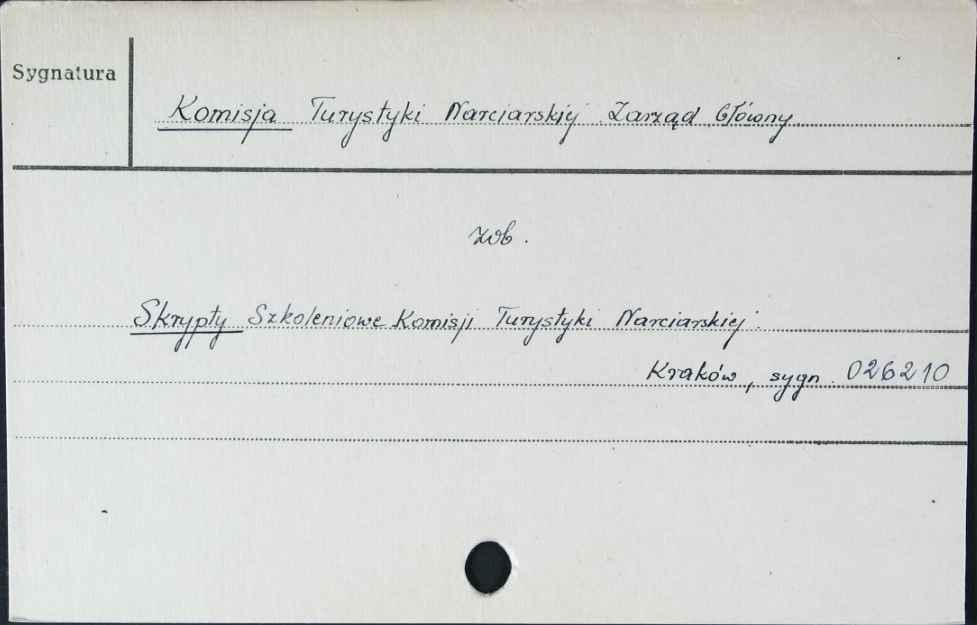 Sygnatura
Komisja Turystyki Narciarskiej Zarząd Główny
zob.
Skrypty Szkoleniowe Komisji Turystyki Narciarskiej.
Kraków, sygn. 026210